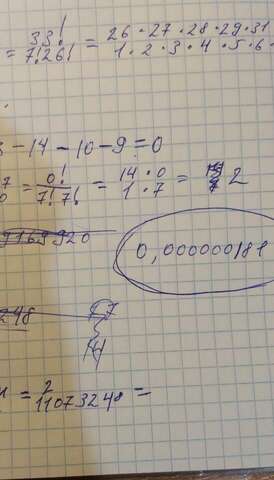 = 33! / 7!26! = 26 · 27 · 28 · 29 · 31 / 1 · 2 · 3 · 4 · 5 · 6 ·
- 14 - 10 - 9 = 0
= 0! / 7! 7! = 14 · 0 / 1 · 7 = 2
0,000000181
248 77
14
= 2 / 11073248 =